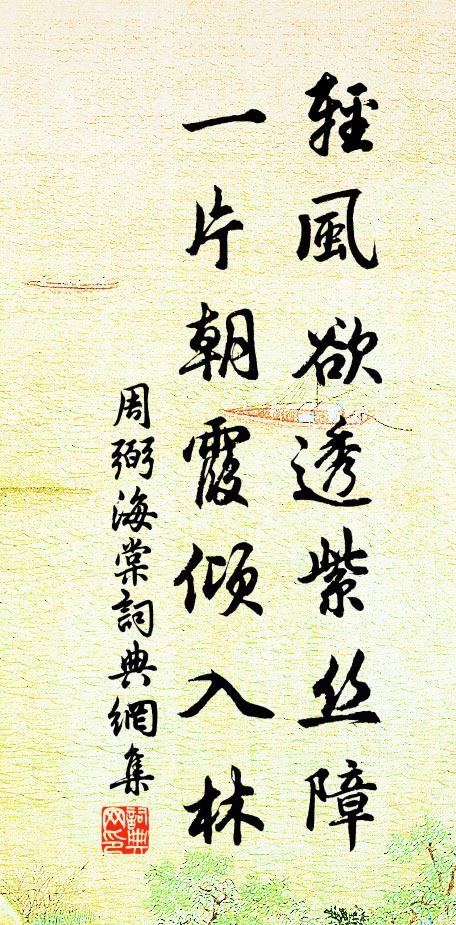 輕風欲透紫丝障
一片朝霞傾入林
周弼海棠詞典網集
詞典网印